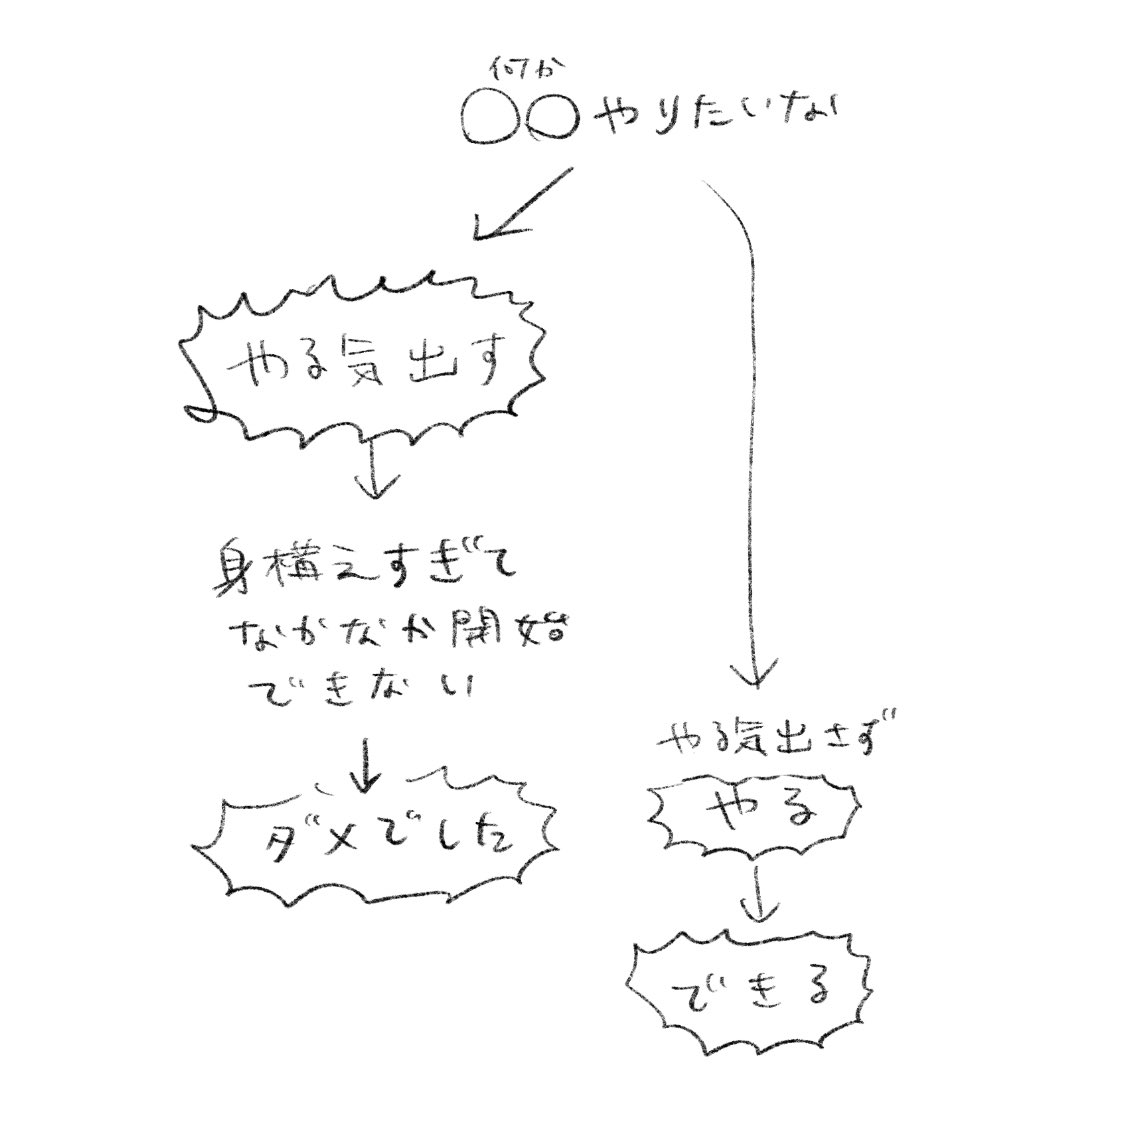 何か
○○やりたいな
やる気出す
身構えすぎて
なかなか開始
できない
ダメでした
やる気出さず
やる
できる